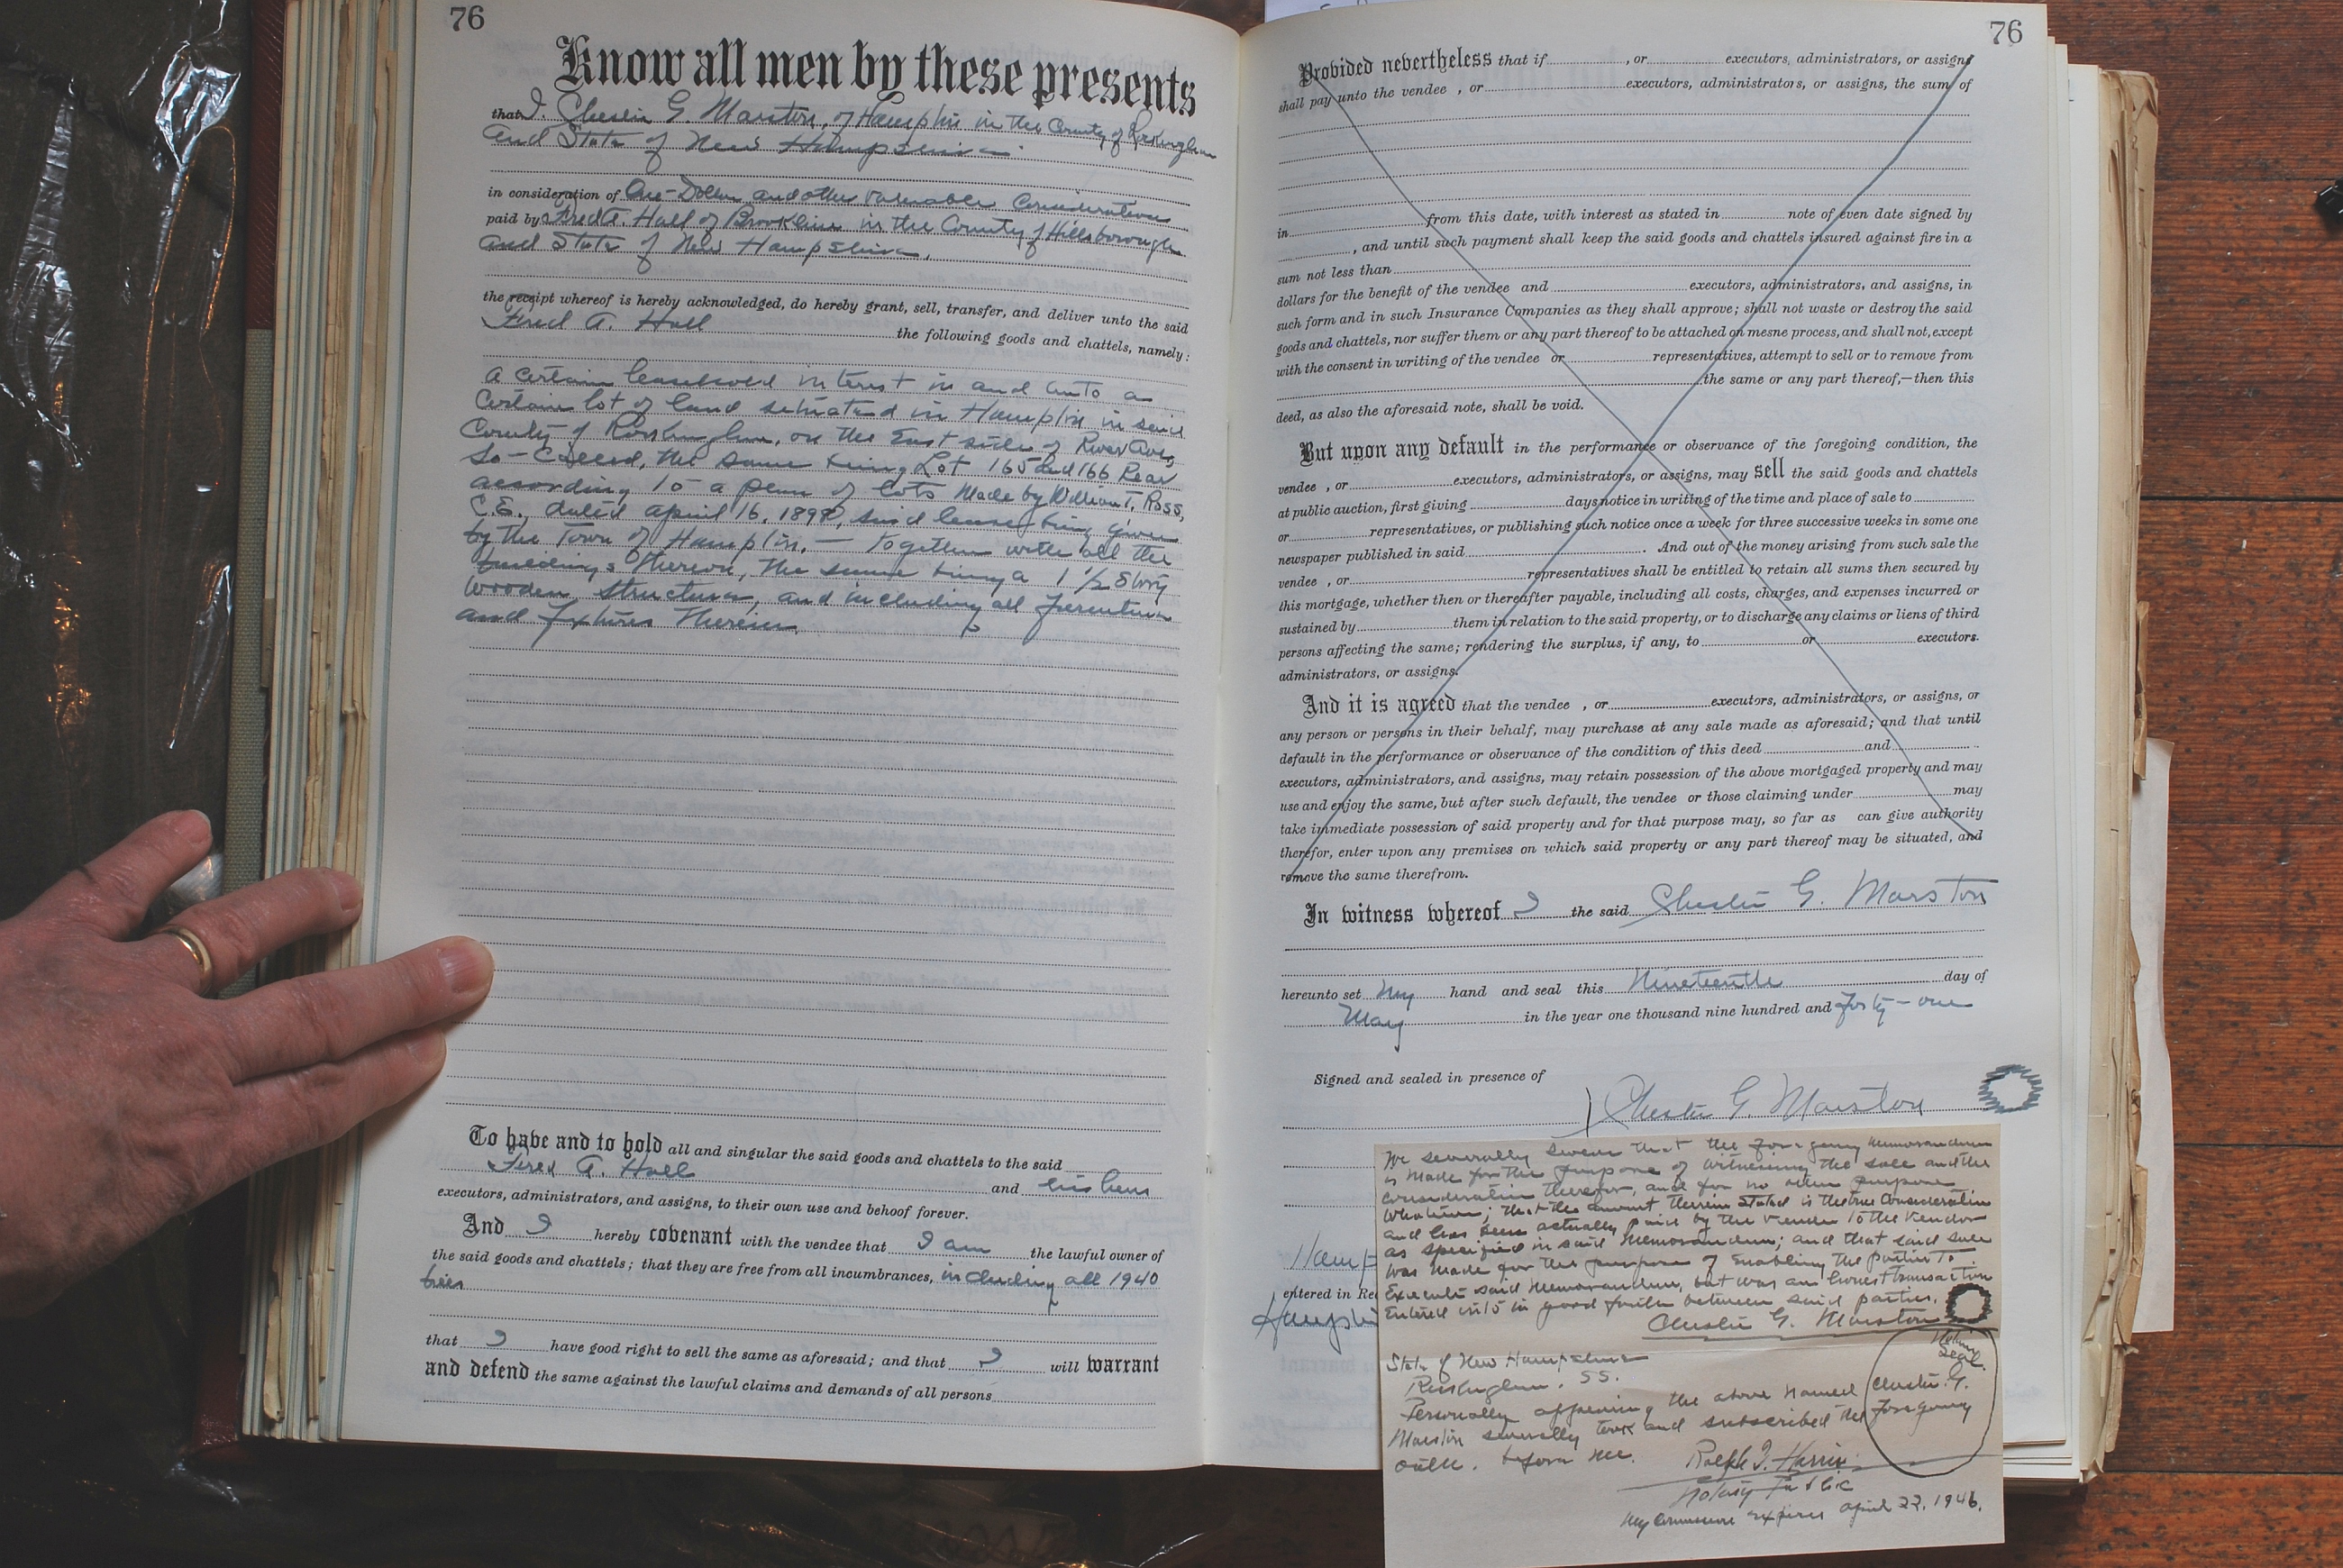 76
Know all men by these presents
that I, Chester G. Marston, of Hampton in the County of Rockingham
and State of New Hampshire
in consideration of One Dollar and other valuable considerations
paid by Fred A. Hall of Brookline in the County of Hillsborough
and State of New Hampshire,
the receipt whereof is hereby acknowledged, do hereby grant, sell, transfer, and deliver unto the said
Fred A. Hall the following goods and chattels, namely:
A certain leasehold interest in and unto a
certain lot of land situated in Hampton in said
County of Rockingham, on the East side of River Ave,
So-Called, the same being Lot 165 and 166 Rear
according to a plan of lots made by William T. Ross,
C.E., dated April 16, 1898, said lease being given
by the Town of Hampton, — Together with all the
buildings thereon, the same being a 1 1/2 Story
wooden structure, and including all furniture
and fixtures therein.
To have and to hold all and singular the said goods and chattels to the said
Fred A. Hall and his heirs
executors, administrators, and assigns, to their own use and behoof forever.
And I hereby covenant with the vendee that I am the lawful owner of
the said goods and chattels; that they are free from all incumbrances, including all 1940
that I have good right to sell the same as aforesaid; and that I will warrant
and defend the same against the lawful claims and demands of all persons
76
Provided nevertheless that if , or executors, administrators, or assigns
shall pay unto the vendee , or executors, administrators, or assigns, the sum of
from this date, with interest as stated in note of even date signed by
in , and until such payment shall keep the said goods and chattels insured against fire in a
sum not less than
dollars for the benefit of the vendee and executors, administrators, and assigns, in
such form and in such Insurance Companies as they shall approve; shall not waste or destroy the said
goods and chattels, nor suffer them or any part thereof to be attached on mesne process, and shall not, except
with the consent in writing of the vendee or representatives, attempt to sell or to remove from
the same or any part thereof,—then this
deed, as also the aforesaid note, shall be void.
But upon any default in the performance or observance of the foregoing condition, the
vendee , or executors, administrators, or assigns, may sell the said goods and chattels
at public auction, first giving days notice in writing of the time and place of sale to
or representatives, or publishing such notice once a week for three successive weeks in some one
newspaper published in said . And out of the money arising from such sale the
vendee , or representatives shall be entitled to retain all sums then secured by
this mortgage, whether then or thereafter payable, including all costs, charges, and expenses incurred or
sustained by them in relation to the said property, or to discharge any claims or liens of third
persons affecting the same; rendering the surplus, if any, to or executors.
administrators, or assigns.
And it is agreed that the vendee , or executors, administrators, or assigns, or
any person or persons in their behalf, may purchase at any sale made as aforesaid; and that until
default in the performance or observance of the condition of this deed and
executors, administrators, and assigns, may retain possession of the above mortgaged property and may
use and enjoy the same, but after such default, the vendee or those claiming under may
take immediate possession of said property and for that purpose may, so far as can give authority
therefor, enter upon any premises on which said property or any part thereof may be situated, and
remove the same therefrom.
In witness whereof I the said Chester G. Marston
hereunto set my hand and seal this Nineteenth day of
May in the year one thousand nine hundred and forty-one
Signed and sealed in presence of
Chester G. Marston
Hamp
entered in Rec
Hampton
We severally swear that the foregoing Memorandum
is made for the purpose of witnessing the sale and the
consideration therefor, and for no other purpose
whatever; that the amount therein stated is the true consideration
and has been actually paid by the vendee to the vendor
as specified in said Memorandum; and that said sale
was made for the purpose of enabling the parties to
execute said Memorandum, but was an honest transaction
entered into in good faith between said parties.
Chester G. Marston
State of New Hampshire
Rockingham. SS.
Seal.
Personally appearing the above named Chester G.
Marston severally took and subscribed the foregoing
oath. before me. Ralph I. Harris
Notary Public
My Commission expires April 22, 1946.